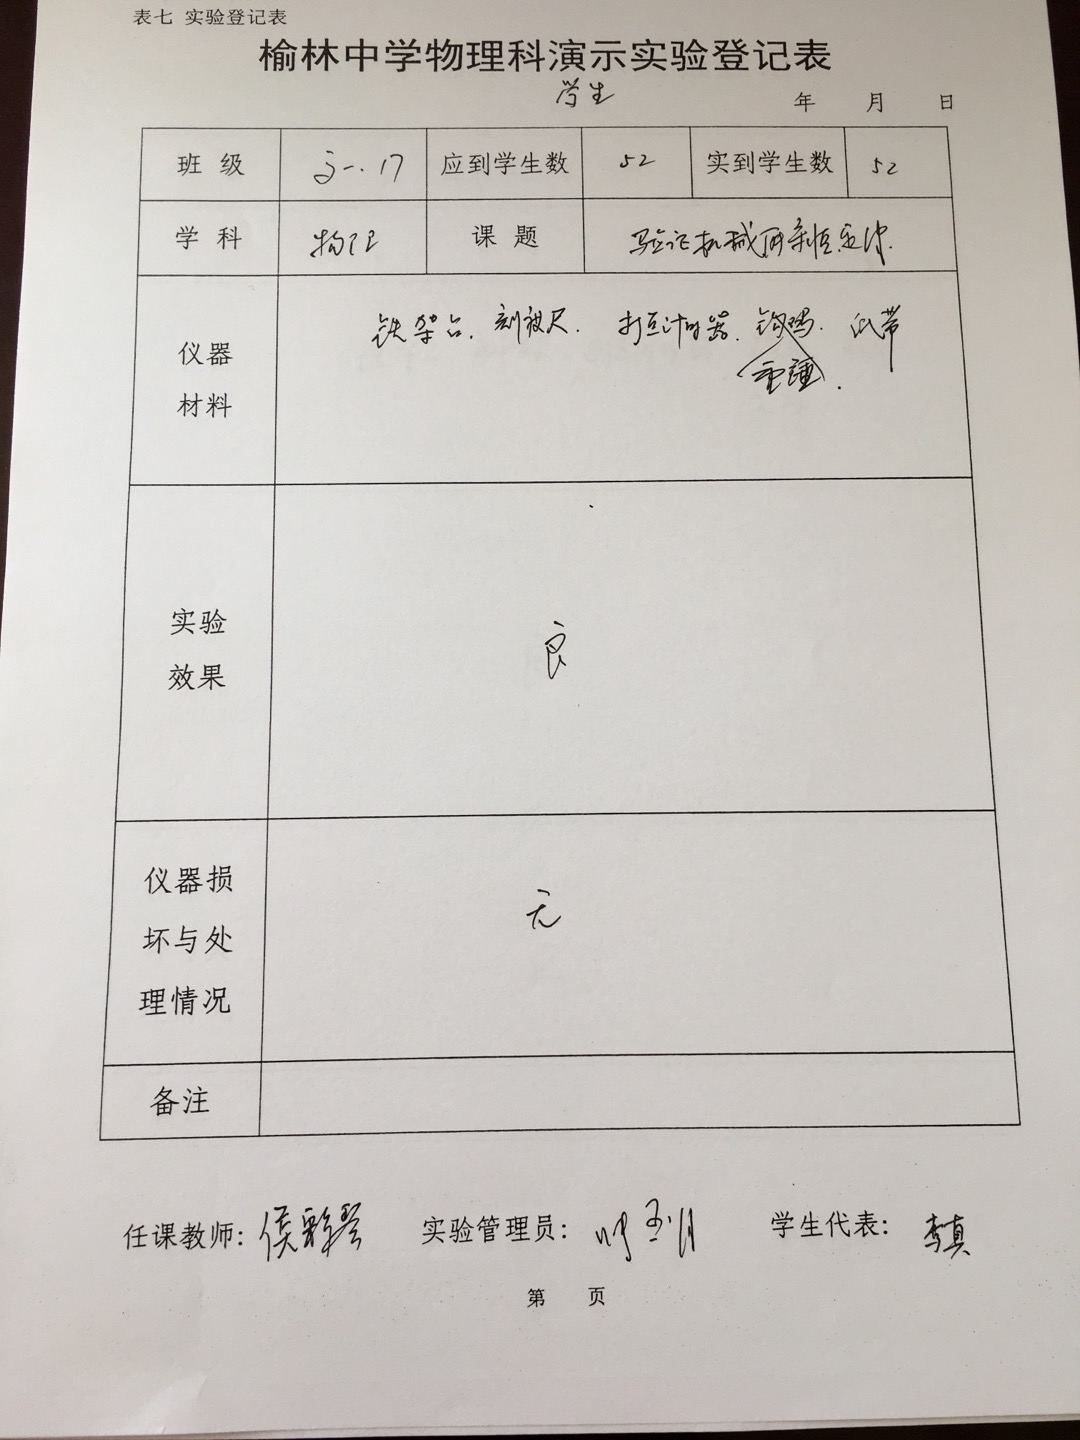 表七 实验登记表
榆林中学物理科演示实验登记表
学生
年 月 日
班 级 高一.17 应到学生数 52 实到学生数 52
学 科 物理 课 题 验证机械能守恒定律.
仪器
材料
铁架台. 刻度尺. 打点计时器. 钩码. 纸带
重锤.
实验
效果
良
仪器损
坏与处
理情况
无
备注
任课教师: 侯 实验管理员: 学生代表: 李真
第 页